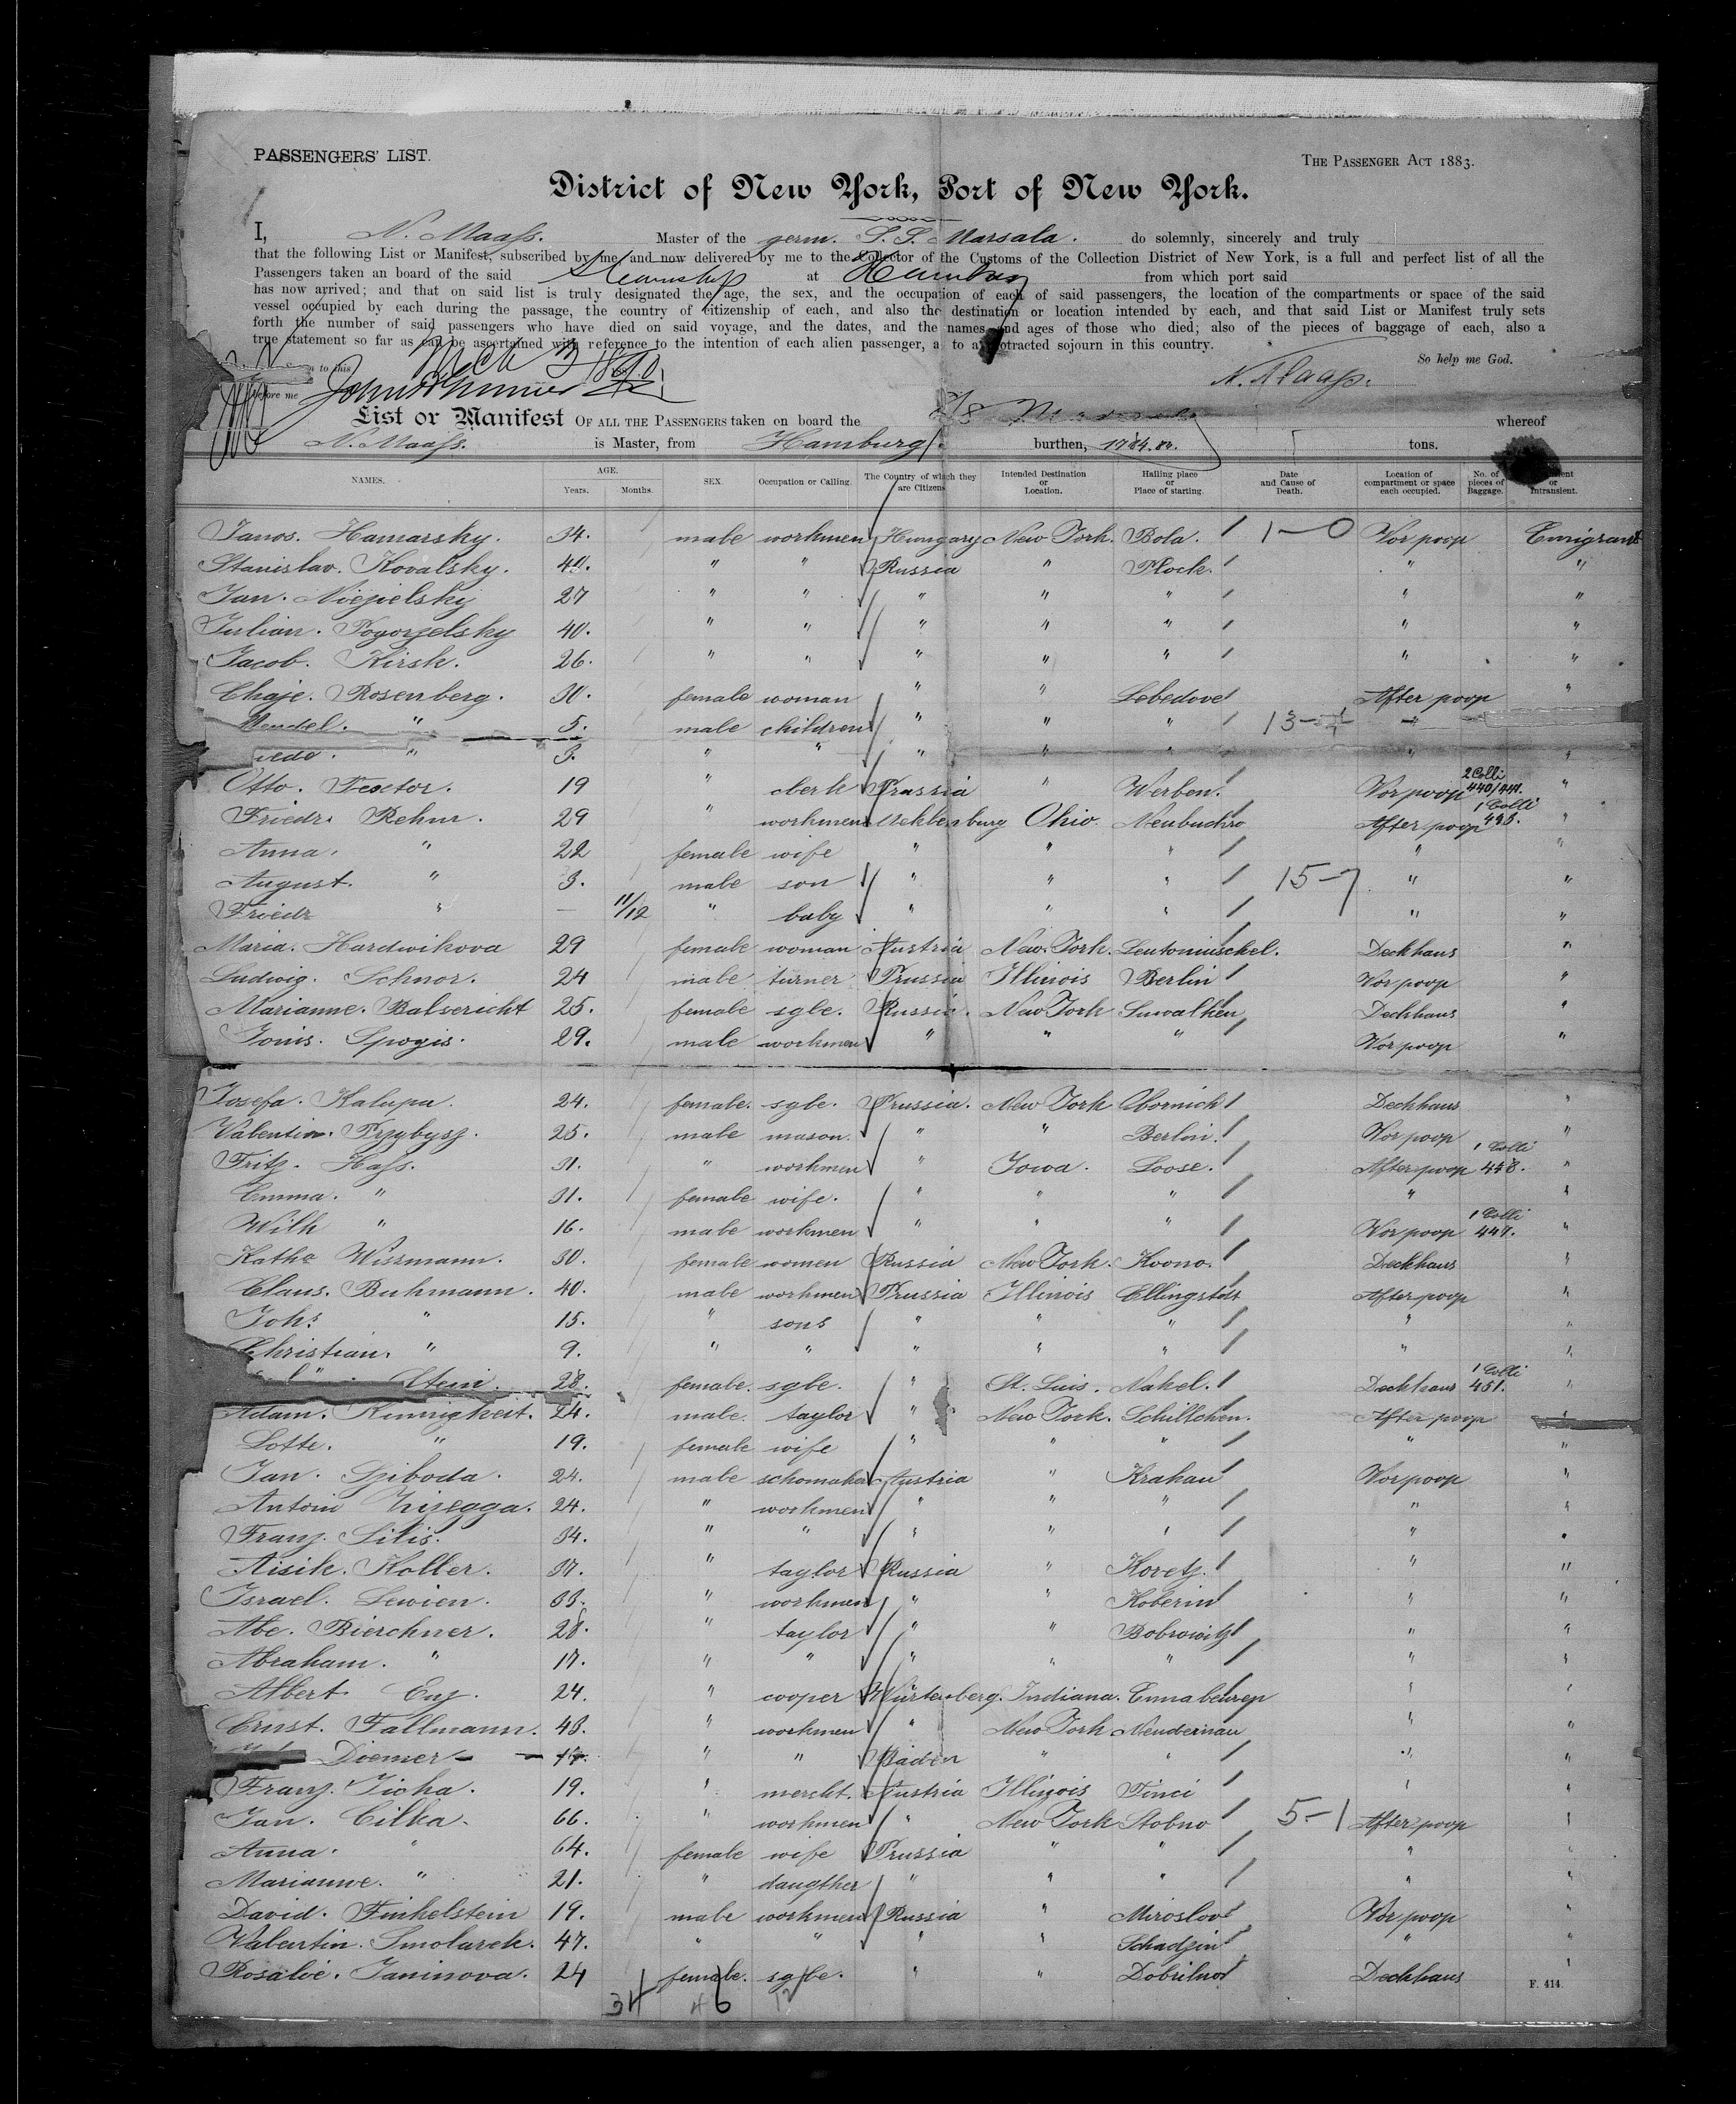 PASSENGERS' LIST.
THE PASSENGER ACT 1883.
District of New York, Port of New York.
I, N. Maaß. Master of the germ. S.S. Marsala. do solemnly, sincerely and truly
that the following List or Manifest, subscribed by me, and now delivered by me to the Collector of the Customs of the Collection District of New York, is a full and perfect list of all the
Passengers taken an board of the said Steamship at Hamburg from which port said
has now arrived; and that on said list is truly designated the age, the sex, and the occupation of each of said passengers, the location of the compartments or space of the said
vessel occupied by each during the passage, the country of citizenship of each, and also the destination or location intended by each, and that said List or Manifest truly sets
forth the number of said passengers who have died on said voyage, and the dates, and the names and ages of those who died; also of the pieces of baggage of each, also a
true statement so far as can be ascertained with reference to the intention of each alien passenger, a to a protracted sojourn in this country.
So help me God.
n to this Mch 3 1890.
N. Maaß.
before me
List or Manifest OF ALL THE PASSENGERS taken on board the S/S Marsala whereof
N. Maaß. is Master, from Hamburg. burthen, tons.
NAMES. AGE. Years. Months. SEX. Occupation or Calling. The Country of which they are Citizens Intended Destination or Location. Hailing place or Place of starting. Date and Cause of Death. Location of compartment or space each occupied. No. of pieces of Baggage. or Intransient.
Janos. Hamarsky. 34. male workmen Hungary New York. Bola. 1-0 Vor poop Emigrant
Stanislav. Kovalsky. 40. " " Russia " Plock. " "
Jan. Niezielsky 27 " " " " " " "
Julian. Pogorzelsky 40. " " " " " " "
Jacob. Kirsh. 26. " " " " " " "
Chaje. Rosenberg. 30. female woman " " Lebedove After poop "
Mendel. " 5. male children " " " 13- "
" 3. " " " " " " "
Otto. Fector. 19 " clerk Prussia " Werben. Vor poop 2 Colli 440/441. "
Friedr. Rehm. 29 " workmen Meklenburg Ohio. Neubuckro After poop 1 Colli "
Anna. " 22 female wife " " " " "
August. " 3. male son " " " 15-7 " "
Friedr " — 11/12 " baby " " " " "
Maria. Hardwikova 29 female woman Austria New York. Leutomischel. Deckhaus "
Ludwig. Schnor. 24 male turner Prussia Illinois Berlin Vor poop "
Marianne. Balsericht 25. female sgle. Russia. New York Suwalken Deckhaus "
Jonis. Spogis. 29. male workmen " " " Vor poop "
Josefa. Kalupa. 24. female. sgle. Prussia. New York Obornick Deckhaus "
Valentin. Przybysz. 25. male mason. " " Berlin. Vor poop "
Fritz. Haß. 31. " workmen " Iowa. Loose. After poop 1 Colli 458. "
Emma. " 31. female wife. " " " " "
Wilh " 16. male workmen " " " Vor poop 1 Colli 447. "
Kathe Wissmann. 30. female women Russia New York. Kovno. Deckhaus "
Claus. Buhmann. 40. male workmen Prussia Illinois Ellingstdt After poop "
Johs " 15. " sons " " " " "
Christian. " 9. " " " " " " "
Stein. 28. female. sgle. " St. Luis. Nakel. Deckhaus 1 Colli 451. "
Adam. Kinnigkeit. 24. male. taylor " New York. Schillchen. After poop "
Lotte. " 19. female wife " " " " "
Jan. Sziboda. 24. male schomaker Austria " Krakau Vor poop "
Antoni 24. " workmen " " " " "
Franz. Silis. 34. " " " " " " "
Aisik. Koller. 37. " taylor Russia " Kovetz. " "
Israel. Lewien. 33. " workmen " " Koberin " "
Abe. Bierchner. 28. " taylor " " Bobrowitz " "
Abraham. " 17. " " " " " " "
Albert Enz. 24. " cooper Würtenberg. Indiana. " "
Ernst. Fallmann. 48. " workmen " New York Neudernau " "
Diemer 17. " " Baden " " " "
Franz. Ticha. 19. " mercht. Austria Illinois Tinci " "
Jan. Cilka. 66. " workmen " New York Stobno 5-1 After poop "
Anna. " 64. female wife Prussia " " " "
Marianne. " 21. " daugther " " " " "
David. Finkelstein 19. male workmen Russia " Miroslov Vor poop "
Valentin. Smolarek. 47. " " " " Schadzin " "
Rosalie. Janinova. 24 female. sgle. " " Dobrilnor Deckhaus "
F. 414.
34 46 12